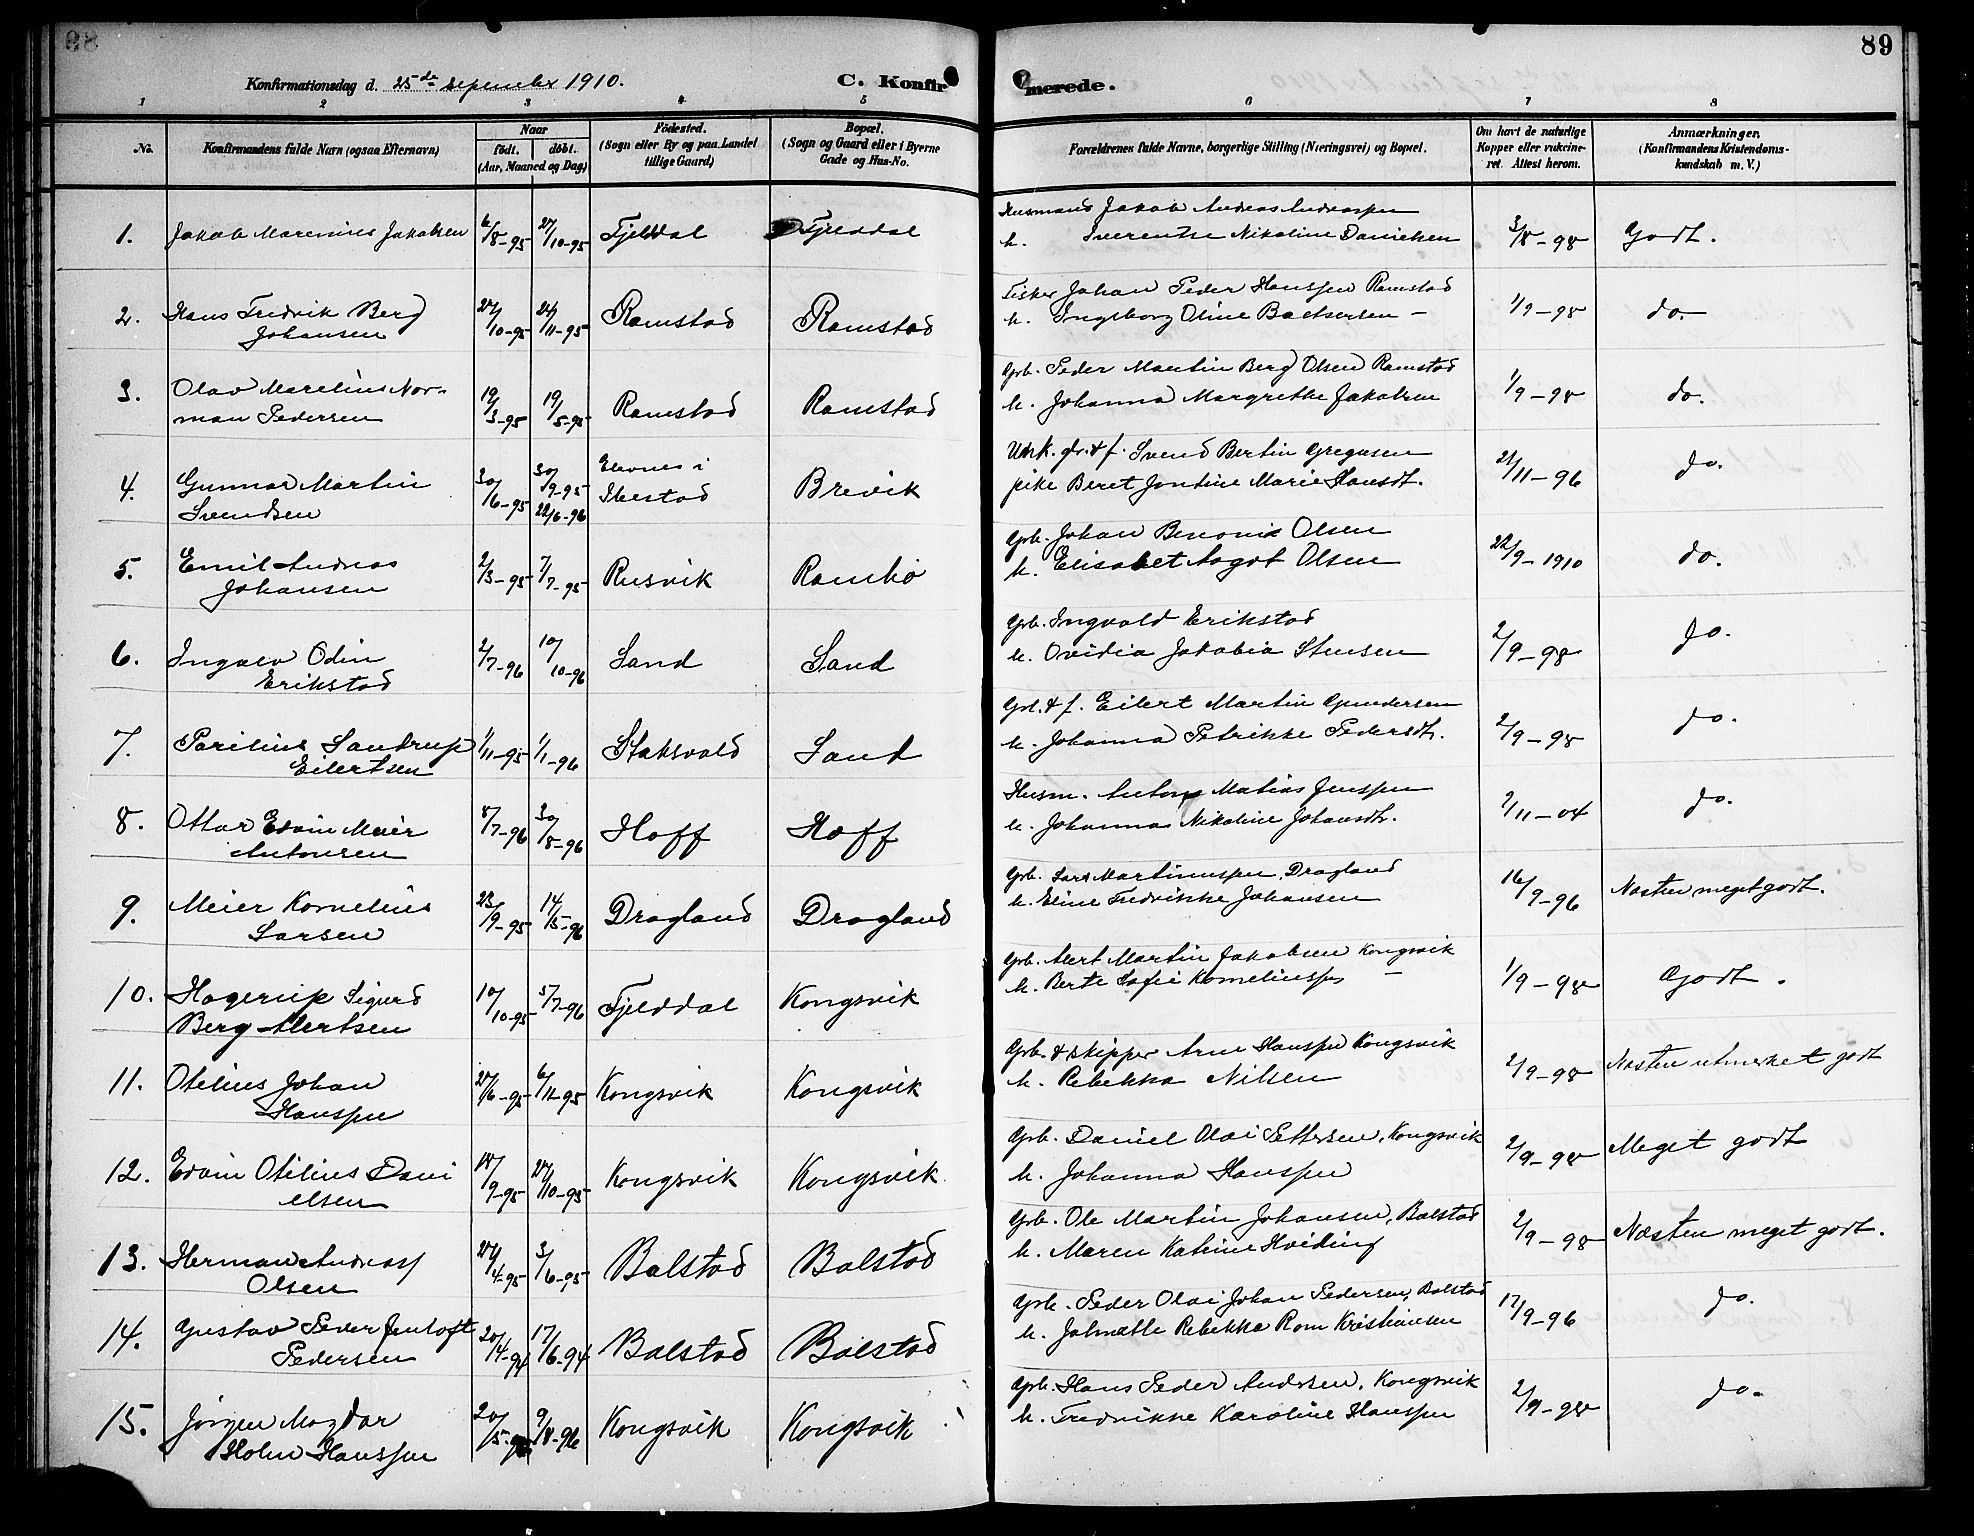 89
Konfirmationsdag d. 25de september 1910.
C. Konfirmerede.
1 2 3 4 5 6 7 8
No.
Konfirmandens fulde Navn (ogsaa Efternavn)
Naar
født. døbt.
(Aar, Maaned og Dag)
Fødested.
(Sogn eller By og paa Landet
tillige Gaard)
Bopæl.
(Sogn og Gaard eller i Byerne
Gade og Hus-No.
Forældrenes fulde Navne, borgerlige Stilling (Næringsvei) og Bopæl.
Om havt de naturlige
Kopper eller vakcine-
ret. Attest herom.
Anmærkninger.
(Konfirmandens Kristendoms-
kundskab m. V.)
1. Jakob Marenius Jakobsen 6/8-95 27/10-95 Fjelddal Fjelddal Husmand Jakob Andreas Andreassen 3/8-98 Godt.
h. Nikoline Danielsen
2. Hans Fredrik Berg 27/10-95 24/11-95 Ramstad Ramstad Fisker Johan Peder Hanssen Ramstad 1/9-98 do.
Johansen h. Ingeborg Oline Baltsersen -
3. Olav Marelius Nor- 19/3-95 19/5-95 Ramstad Ramstad Grb. Peder Martin Berg Olsen Ramstad 1/9-98 do.
man Pedersen h. Johanna Margrethe Jakobsen
4. Gunnar Martin 30/6-95 30/9-95 22/6-96 Elevnes i Brevik Svend Bertin Gregusen 21/11-96 do.
Svendsen Ibestad pike Beret Jontine Marie Hansdt.
5. Emil Andreas 2/3-95 7/7-95 Rusvik Rambø Grb. Johan Benonie Olsen 22/9-1910 do.
Johansen h. Elisabet Aagot Olsen
6. Ingolv Odin 2/7-96 10/10-96 Sand Sand Grb. Ingvald Erikstad 2/9-98 do.
Erikstad h. Ovidia Jakobia Stensen
7. Parilius Sandrup 1/11-95 1/1-96 Staksvold Sand Grb. & f. Eilert Martin Gundersen 2/9-98 do.
Eilertsen h. Johanna Petrikke Pedersdt.
8. Ottar Edvin Meier 8/7-96 30/8-96 Hoff Hoff Husm. Anton Matias Jenssen 2/11-04 do.
Antonsen h. Johanna Nikoline Johansdt.
9. Meier Kornelius 23/9-95 14/5-96 Dragland Dragland Grb. Lars Martinussen, Dragland 16/9-96 Næsten meget godt.
Larsen h. Eline Fredrikke Johansen
10. Hagerup Sigurd 10/10-95 5/7-96 Fjelddal Kongsvik Grb. Alert Martin Jakobsen Kongsvik 1/9-98 Godt.
Berg Alertsen h. Berte Sofie Korneliussen -
11. Otelius Johan 27/6-95 6/11-95 Kongsvik Kongsvik Grb. & skipper Arne Hanssen Kongsvik 2/9-98 Næsten utmerket godt
Hanssen h. Rebekka Nilsen
12. Edvin Otelius Dani 18/9-95 27/10-95 Kongsvik Kongsvik Grb. Daniel Olai Pettersen, Kongsvik 2/9-98 Meget godt
elsen h. Johanna Hanssen
13. Herman Andreas 27/4-95 3/6-95 Balstad Balstad Grb. Ole Martin Johansen, Balstad 2/9-98 Næsten meget godt.
Olsen h. Maren Katrine Hviding
14. Gustav Peder Jentoft 20/4-94 17/6-94 Balstad Balstad Grb. Peder Olai Johan Pedersen, Balstad 17/9-96 do.
Pedersen h. Jalmette Rebekka Rom Kristiansen
15. Jørgen Magdar 20/5-96 9/8-96 Kongsvik Kongsvik Grb. Hans Peder Andersen, Kongsvik 2/9-98 do.
Holm Hanssen h. Fredrikke Karoline Hanssen